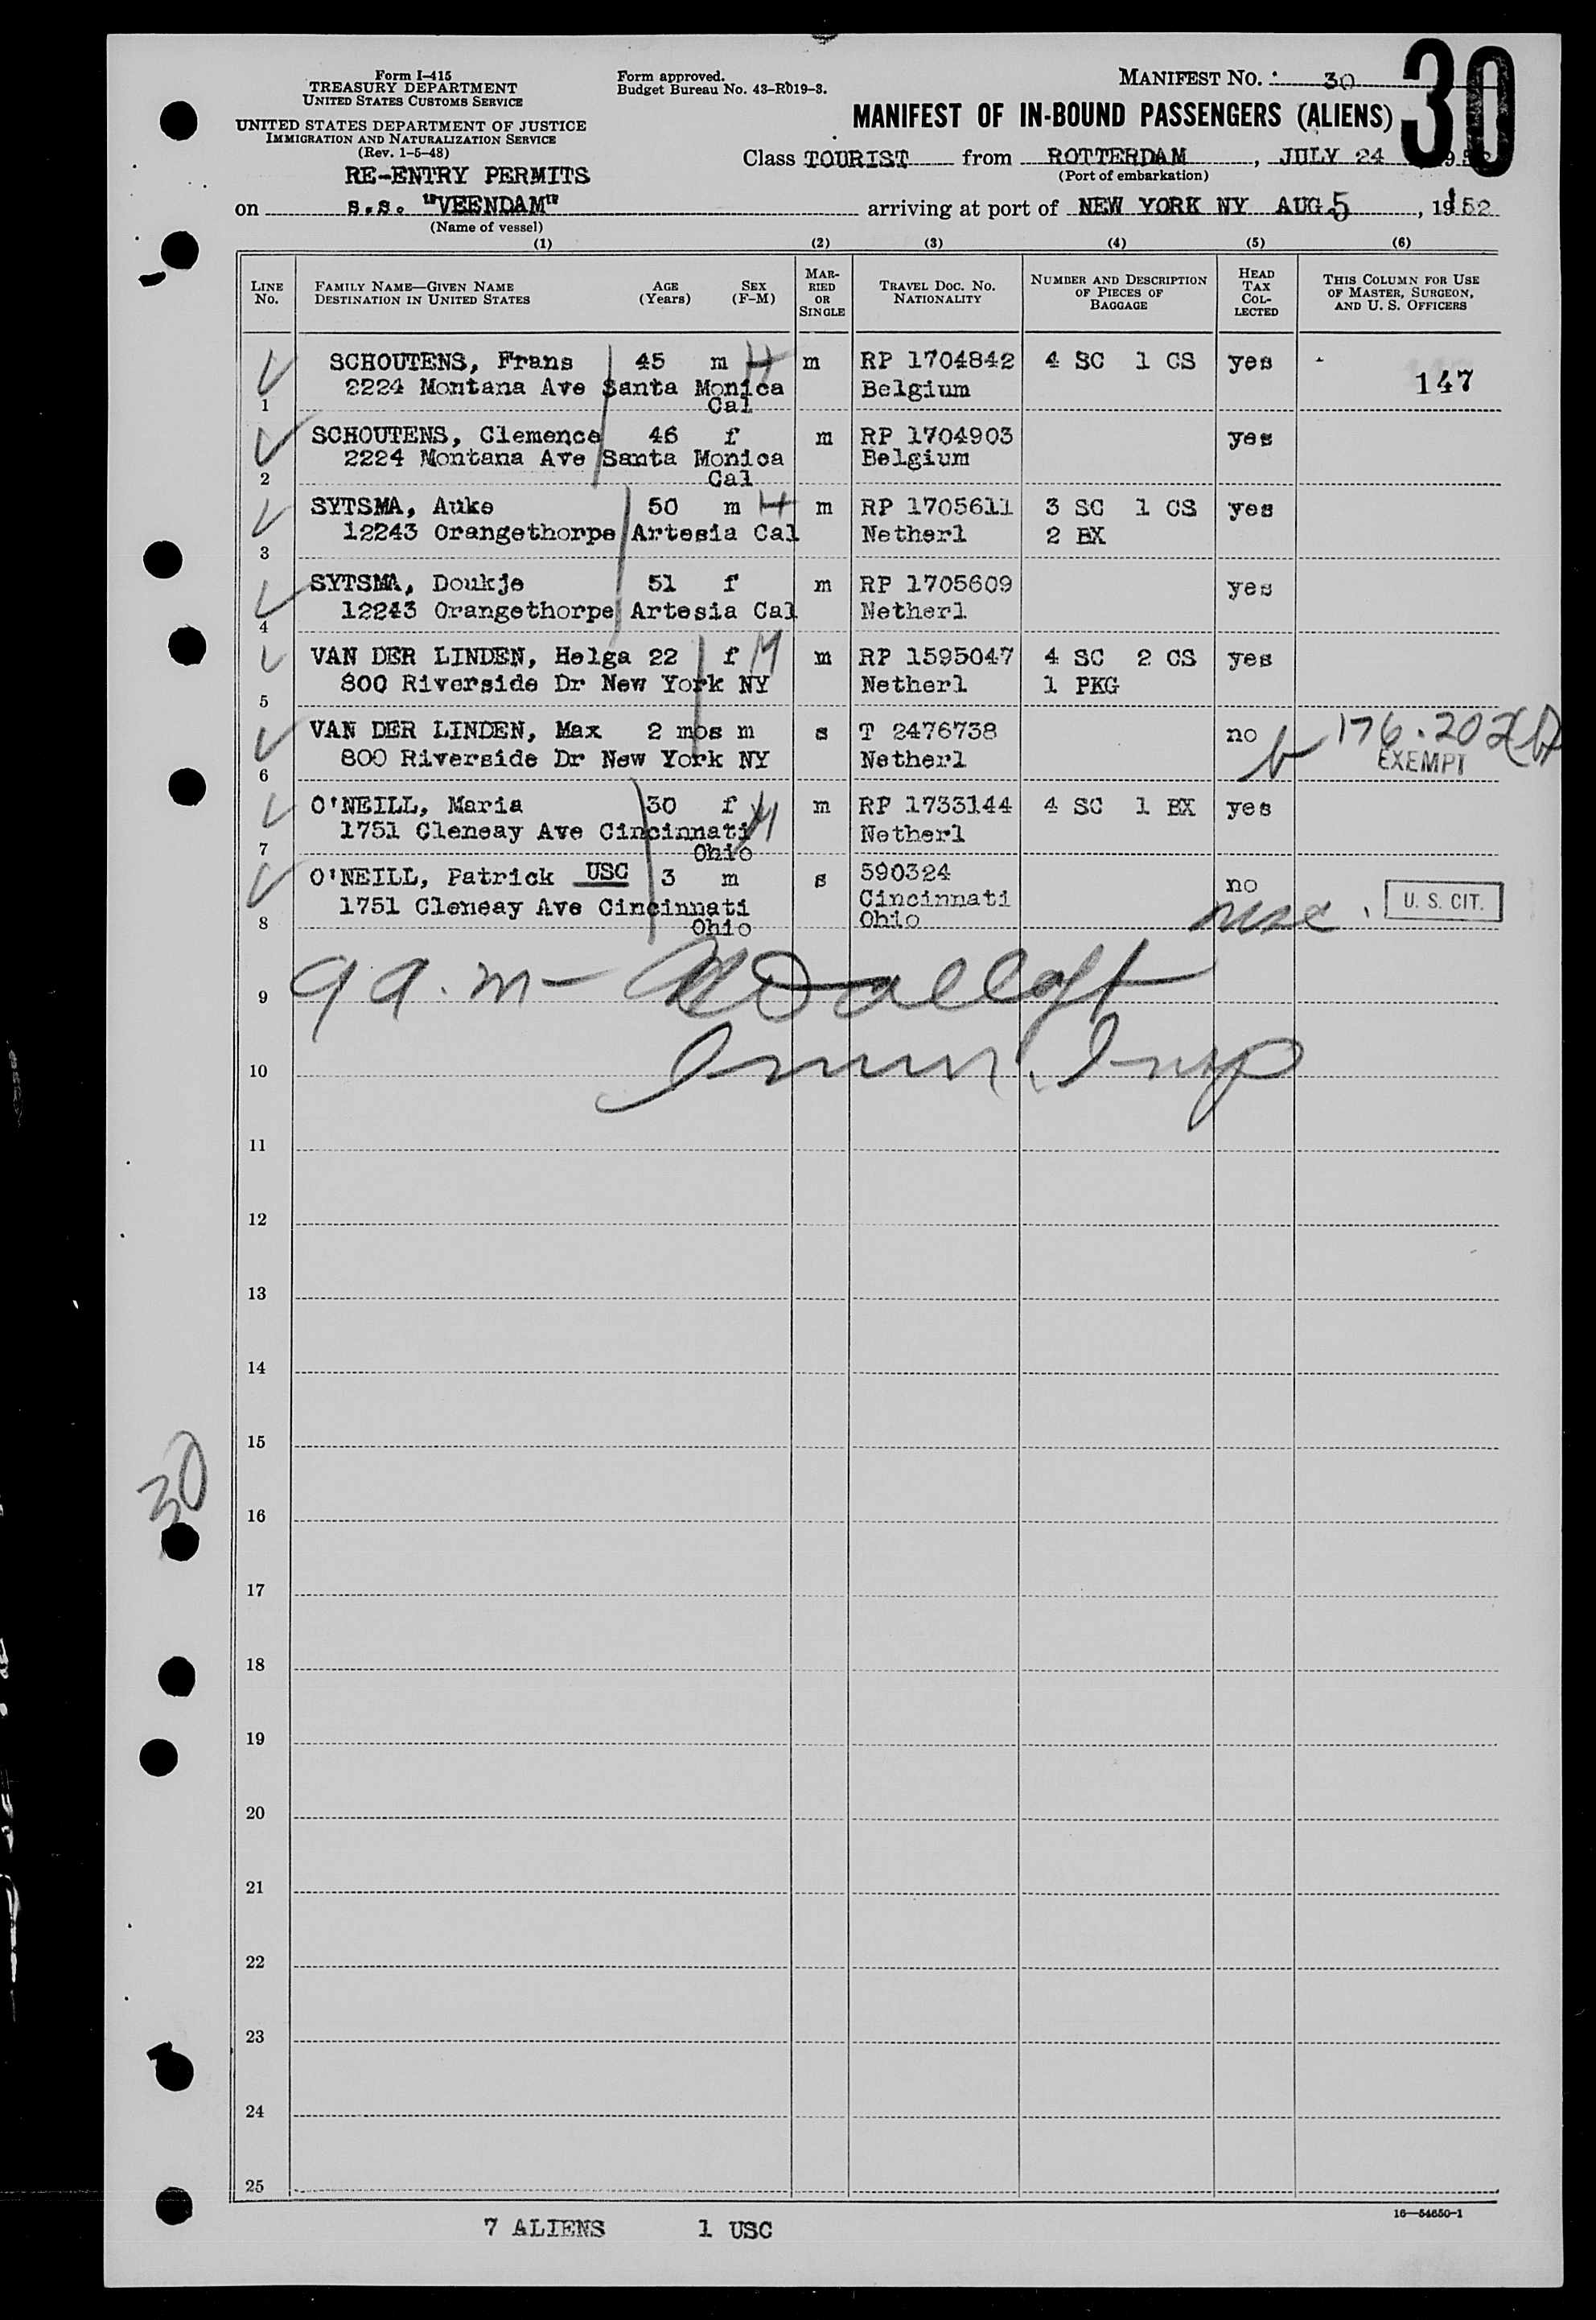 Form I-415
TREASURY DEPARTMENT
UNITED STATES CUSTOMS SERVICE
UNITED STATES DEPARTMENT OF JUSTICE
IMMIGRATION AND NATURALIZATION SERVICE
(Rev. 1-5-48)
RE-ENTRY PERMITS
Form approved.
Budget Bureau No. 43-R019-3.
MANIFEST NO. 30
30
MANIFEST OF IN-BOUND PASSENGERS (ALIENS)
Class TOURIST from ROTTERDAM, JULY 24 1952
(Port of embarkation)
on s.s. "VEENDAM" arriving at port of NEW YORK NY AUG 5, 1952
(Name of vessel)
(1) (2) (3) (4) (5) (6)
LINE NO.
FAMILY NAME—GIVEN NAME
DESTINATION IN UNITED STATES
AGE (Years)
SEX (F-M)
MARRIED OR SINGLE
TRAVEL DOC. NO.
NATIONALITY
NUMBER AND DESCRIPTION OF PIECES OF BAGGAGE
HEAD TAX COLLECTED
THIS COLUMN FOR USE OF MASTER, SURGEON, AND U. S. OFFICERS
1 SCHOUTENS, Frans 45 m H m RP 1704842 4 SC 1 CS yes 147
2224 Montana Ave Santa Monica Cal Belgium
2 SCHOUTENS, Clemence 46 f m RP 1704903 yes
2224 Montana Ave Santa Monica Cal Belgium
3 SYTSMA, Auke 50 m H m RP 1705611 3 SC 1 CS yes
12243 Orangethorpe Artesia Cal Netherl 2 BX
4 SYTSMA, Doukje 51 f m RP 1705609 yes
12243 Orangethorpe Artesia Cal Netherl
5 VAN DER LINDEN, Helga 22 f M m RP 1595047 4 SC 2 CS yes
800 Riverside Dr New York NY Netherl 1 PKG
6 VAN DER LINDEN, Max 2 mos m s T 2476738 no 176.202
800 Riverside Dr New York NY Netherl EXEMPT
7 O'NEILL, Maria 30 f M m RP 1733144 4 SC 1 BX yes
1751 Cleneay Ave Cincinnati Ohio Netherl
8 O'NEILL, Patrick USC 3 m s 590324 no
1751 Cleneay Ave Cincinnati Ohio Cincinnati Ohio U. S. CIT.
9 9 a.m-
10 Immn. Insp
11
12
13
14
15
30
16
17
18
19
20
21
22
23
24
25
16—54650-1
7 ALIENS 1 USC